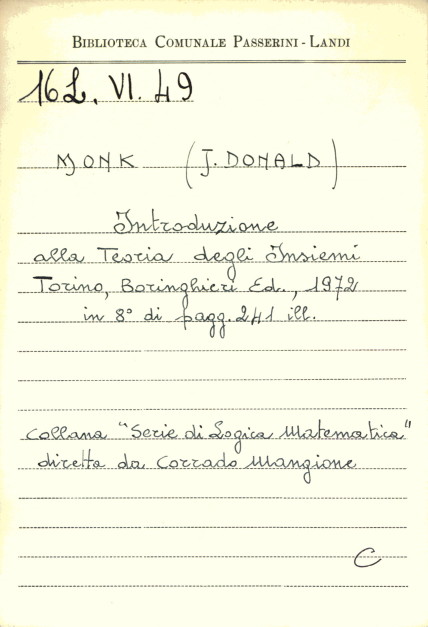 BIBLIOTECA COMUNALE PASSERINI - LANDI
16L. VI. 49
MONK (J. DONALD)
Introduzione
alla Teoria degli Insiemi
Torino, Boringhieri Ed., 1972
in 8° di pagg. 241 ill.
collana "Serie di Logica Matematica"
diretta da Corrado Mangione
C